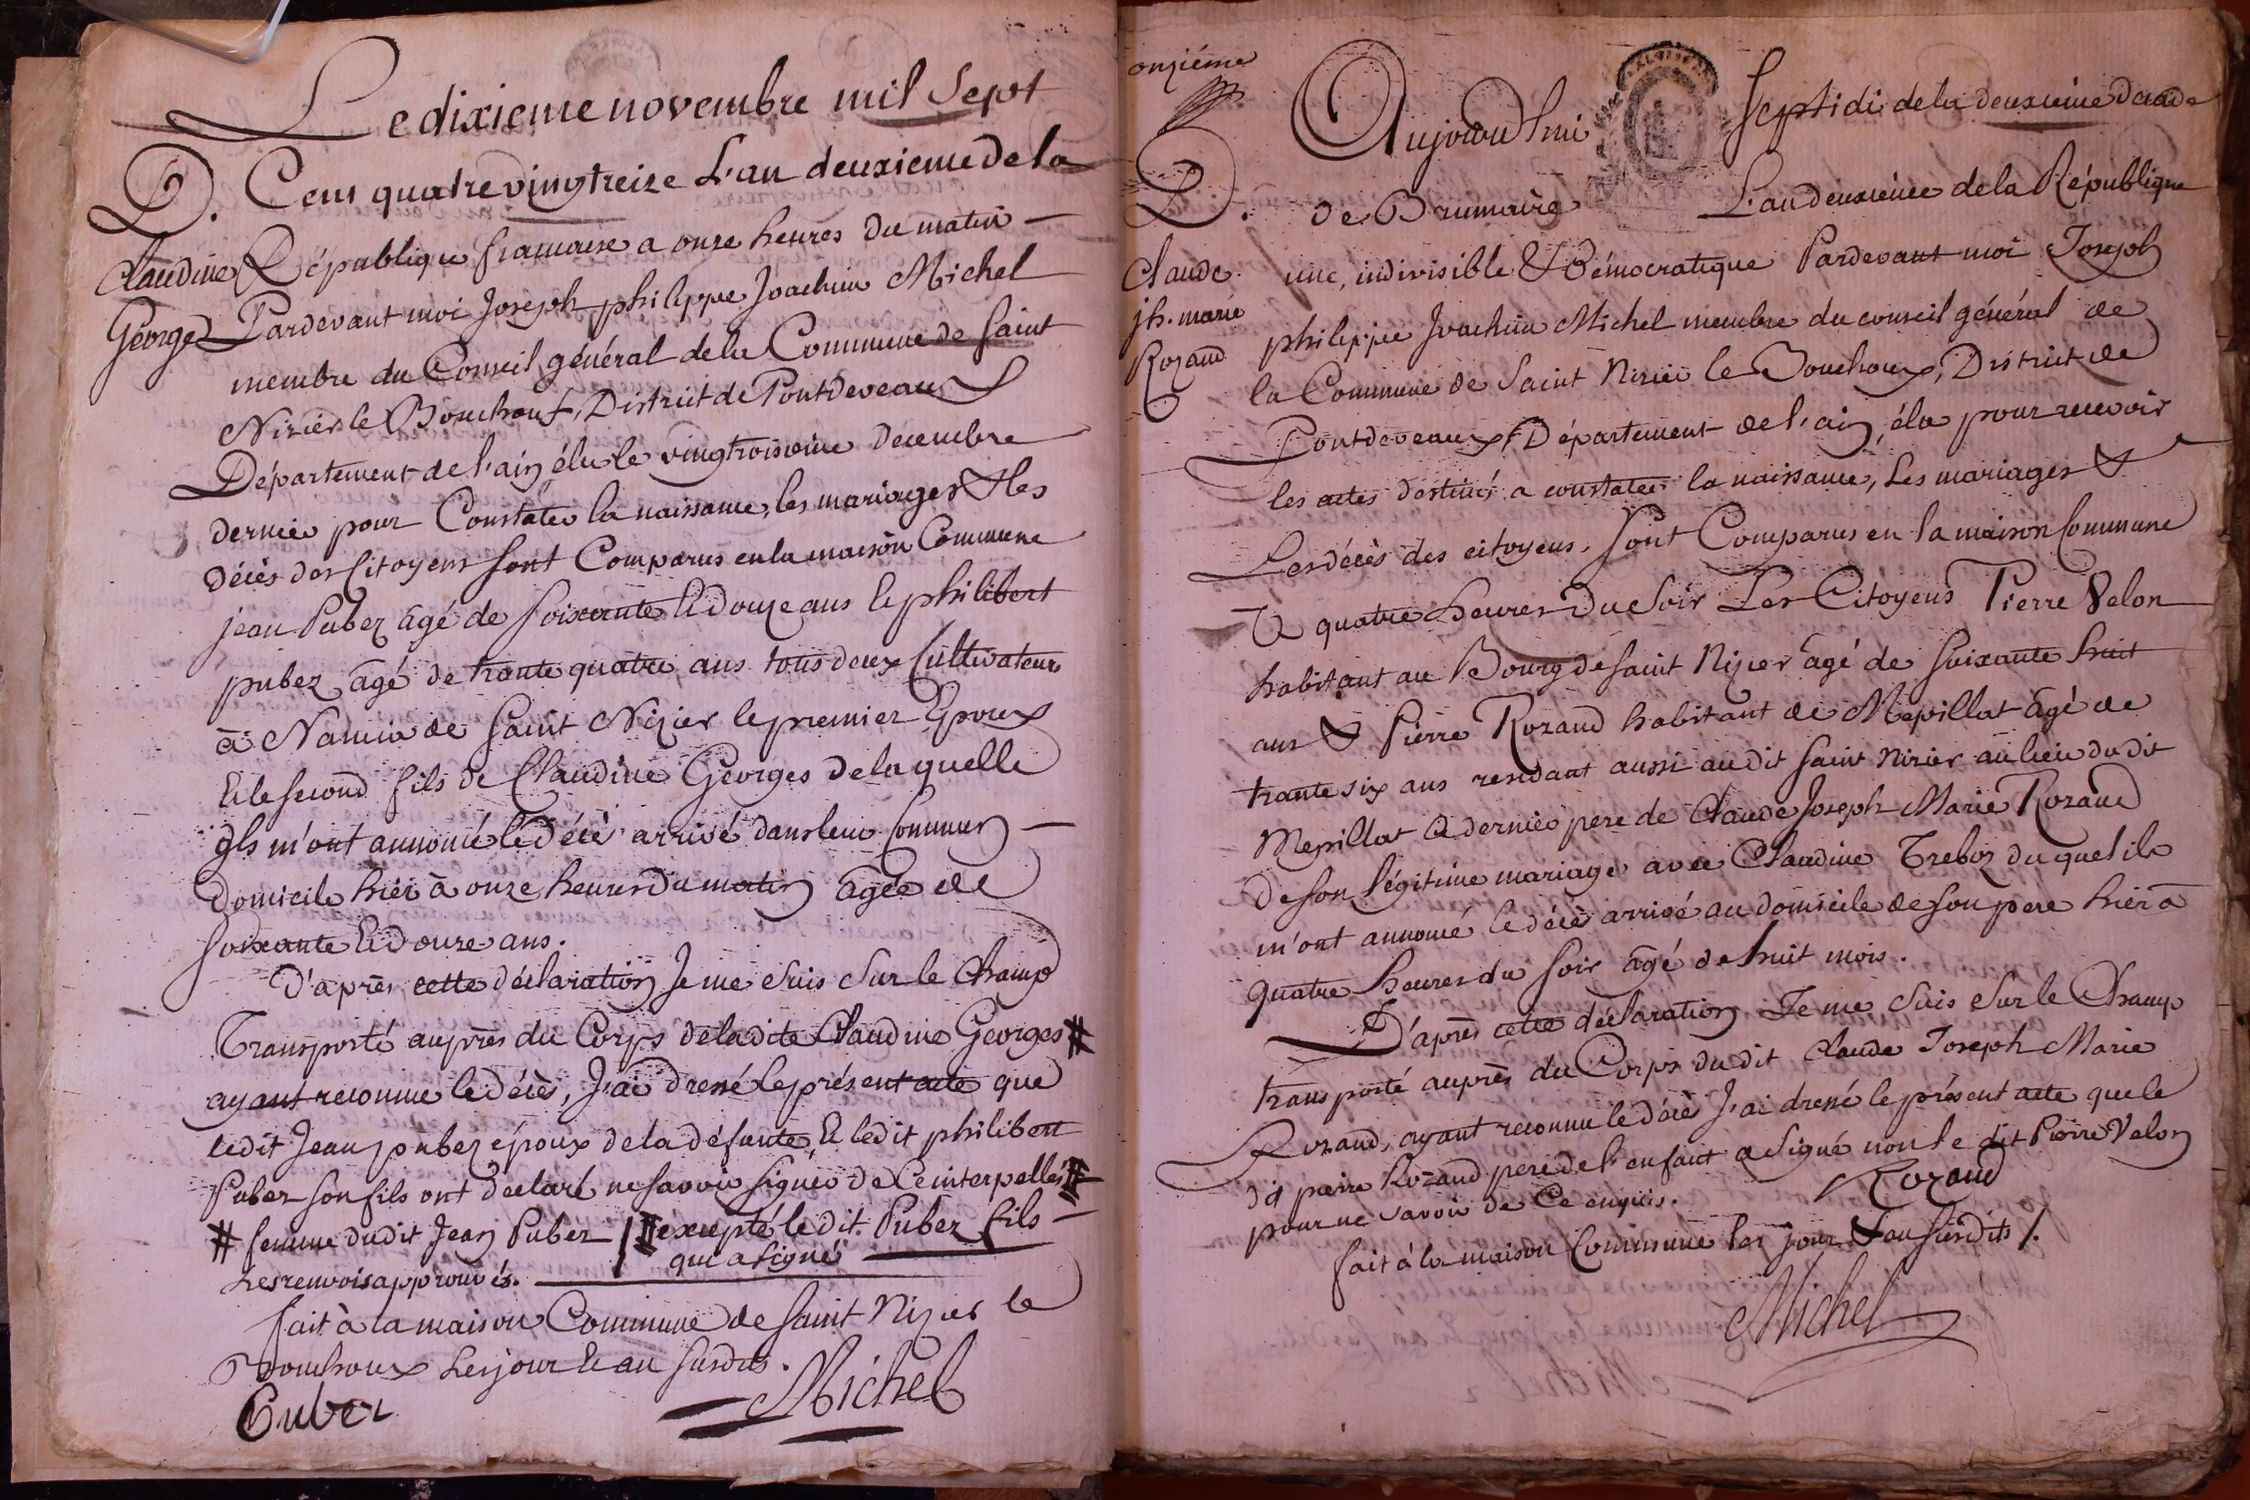 Le dixieme novembre mil Sept
D. Cent quatre vingt treize L'an deuxieme de la
Claudine République francaise a onze heures du matin
Georges Pardevant moi Joseph philippe Joachim Michel
membre du Conseil général de la Commune de Saint
Nizier le Bouchoux, District de Pontdevaux
Département de l'ain élu le vingt troisieme décembre
dernier pour Constater la naissance, les mariages & les
décès des Citoyens sont Comparus en la maison Commune
jean Pubez âgé de soixante & douze ans & philibert
pubez âgé de trante quatre ans tous deux Cultivateurs
à de Saint Nizier le premier Epoux
& le second fils de Claudine Georges de la quelle
ils m'ont annoncé le décès arrivé dans leur commun
domicile hier à onze heures du matin âgée de
soixante & douze ans.
D'après cette déclaration Je me suis sur le Champ
Transporté auprès du Corps de ladite Claudine Georges #
ayant reconnu le décès, J'ai dressé le présent acte que
ledit Jean pubez époux de la défunte & ledit philibert
Pubez son fils ont déclaré ne savoir signer de Ce interpellés #
# femme dudit Jean Pubez / # excepté le dit Pubez fils
qui a signé
Les renvois approuvés.
fait à la maison Commune de Saint Nizier le
Bouchoux Les jour & an susdits.
Puber Michel
onzième
Aujourdhui Septidi de la deuxieme décade
D. de Brumaire L'an deuxième de la République
Claude une, indivisible & Démocratique Pardevant moi Joseph
jh. marie philippe Joachim Michel membre du conseil général de
Rozand la Commune de Saint Nizier le Bouchoux, District de
Pontdeveaux, Département de l'ain, élu pour recevoir
les actes destinés a constater la naissance, Les mariages &
Les décès des citoyens. Sont Comparus en la maison Commune
à quatre heures du soir Les Citoyens Pierre Velon
habitant au Bourg de saint Nizier âgé de soixante huit
ans & Pierre Rozand habitant de Mepillat âgé de
trante six ans residant aussi audit saint Nizier au lieu dudit
Mepillat Ce dernier pere de Claude Joseph Marie Rozand
de son légitime mariage avec Claudine Treboz du quel ils
m'ont annoncé le décès arrivé au domicile de son pere hier à
quatre heures du soir âgé de huit mois.
D'après cette déclaration Je me suis sur le Champ
transporté auprès du Corps dudit Claude Joseph Marie
Rozand, ayant reconnu le décès J'ai dressé le présent acte que le
dit pierre Rozand pere de l'enfant a signé non le dit Pierre Velon
pour ne savoir de Ce enquis. Rozand
fait à la maison Commune les jour & an susdits /.
Michel